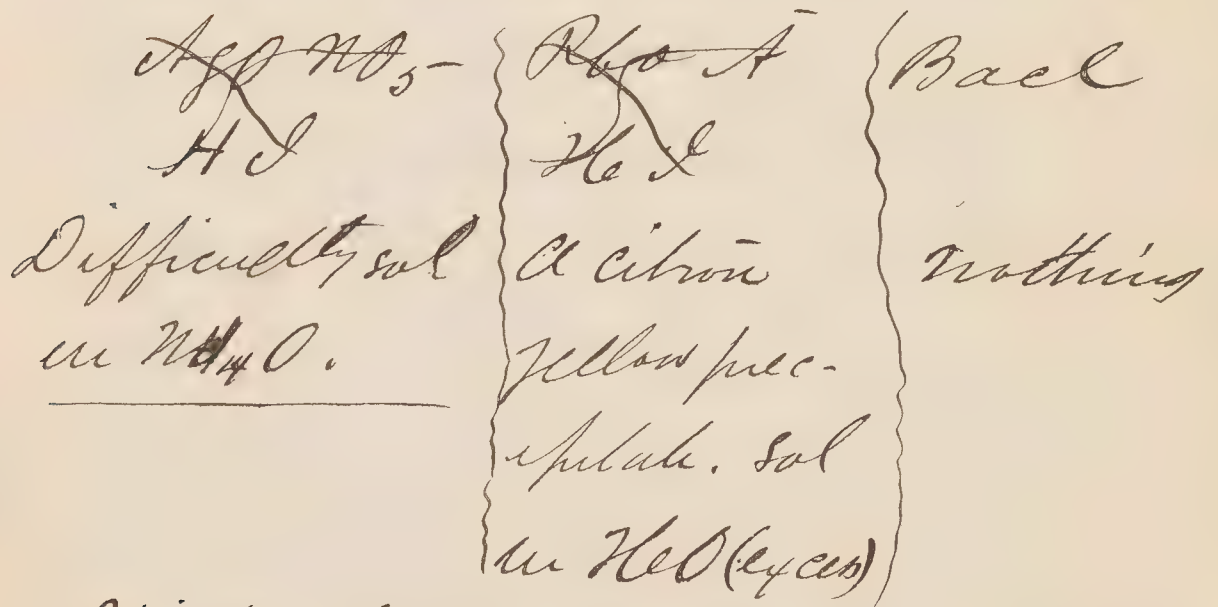 AgO NO5
H I
Difficultly sol
in NH4O.
PbO Ā
H I
A citron
yellow prec-
ipitate. Sol
in HO (excess)
Bacl
nothing